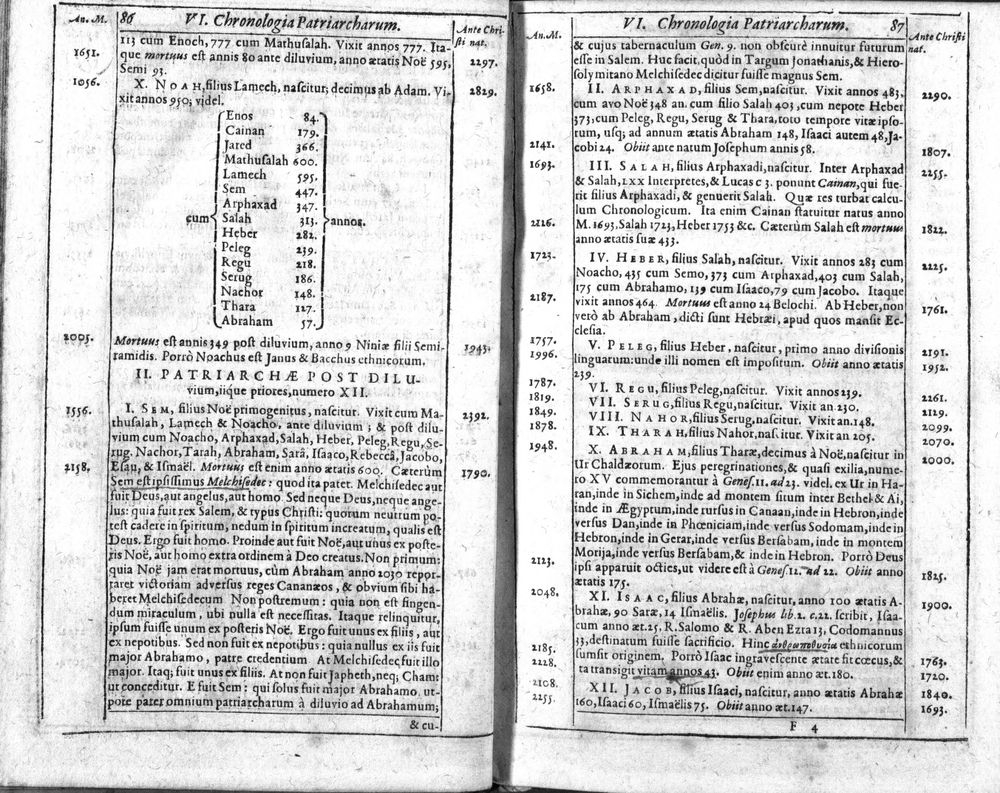 An. M. 86 VI. Chronologia Patriarcharum. Ante Chri-
sti nat.
113 cum Enoch, 777 cum Mathusalah. Vixit annos 777. Ita-
1651. que mortuus est annis 80 ante diluvium, anno ætatis Noë 595, 2297.
Semi 93.
1056. X. NOAH, filius Lamech, nascitur, decimus ab Adam. Vi- 2829.
xit annos 950; videl.
Enos 84.
Cainan 179.
Jared 366.
Mathusalah 600.
Lamech 595.
Sem 447.
Arphaxad 347.
cum Salah 313. annos.
Heber 282.
Peleg 239.
Regu 218.
Serug 186.
Nachor 148.
Thara 127.
Abraham 57.
2005. Mortuus est annis 349 post diluvium, anno 9 Niniæ filii Semi- 1943.
ramidis. Porrò Noachus est Janus & Bacchus ethnicorum.
II. PATRIARCHÆ POST DILU-
vium, iique priores, numero XII.
1556. I. SEM, filius Noë primogenitus, nascitur. Vixit cum Ma- 2392.
thusalah, Lamech & Noacho, ante diluvium; & post dilu-
vium cum Noacho, Arphaxad, Salah, Heber, Peleg, Regu, Se-
rug, Nachor, Tarah, Abraham, Sarâ, Isaaco, Rebeccâ, Jacobo,
2158. Esau, & Ismaël. Mortuus est enim anno ætatis 600. Cæterùm 1790.
Sem est ipsissimus Melchisedec: quod ita patet. Melchisedec aut
fuit Deus, aut angelus, aut homo. Sed neque Deus, neque ange-
lus: quia fuit rex Salem, & typus Christi: quorum neutrum po-
test cadere in spiritum, nedum in spiritum increatum, qualis est
Deus. Ergo fuit homo. Proinde aut fuit Noë, aut unus ex poste-
ris Noë, aut homo extra ordinem à Deo creatus. Non primum:
quia Noë jam erat mortuus, cùm Abraham anno 2030 repor-
taret victoriam adversus reges Cananæos, & obvium sibi ha-
beret Melchisedecum Non postremum: quia non est fingen-
dum miraculum, ubi nulla est necessitas. Itaque relinquitur,
ipsum fuisse unum ex posteris Noë. Ergo fuit unus ex filiis, aut
ex nepotibus. Sed non fuit ex nepotibus: quia nullus ex iis fuit
major Abrahamo, patre credentium At Melchisedec fuit illo
major. Itaq; fuit unus ex filiis. At non fuit Japheth, neq; Cham:
ut conceditur. E fuit Sem: qui solus fuit major Abrahamo ut-
pote pater omnium patriarcharum à diluvio ad Abrahamum;
& cu-
An. M. VI. Chronologia Patriarcharum. 87 Ante Christi
nat.
& cujus tabernaculum Gen. 9. non obscurè innuitur futurum
esse in Salem. Huc facit, quòd in Targum Jonathanis, & Hiero-
solymitano Melchisedec dicitur fuisse magnus Sem.
1658. II. ARPHAXAD, filius Sem, nascitur. Vixit annos 483. 2290.
cum avo Noë 348 an. cum filio Salah 403, cum nepote Heber
373, cum Peleg, Regu, Serug & Thara, toto tempore vitæ ipso-
rum, usq; ad annum ætatis Abraham 148, Isaaci autem 48, Ja-
2141. cobi 24. Obiit ante natum Josephum annis 58. 1807.
1693. III. SALAH, filius Arphaxadi, nascitur. Inter Arphaxad 2255.
& Salah, LXX Interpretes, & Lucas c 3. ponunt Cainan, qui fue-
rit filius Arphaxadi, & genuerit Salah. Quæ res turbat calcu-
lum Chronologicum. Ita enim Cainan statuitur natus anno
2126. M. 1693, Salah 1723, Heber 1753 &c. Cæterùm Salah est mortuus 1822.
anno ætatis suæ 433.
1723. IV. HEBER, filius Salah, nascitur. Vixit annos 283 cum 2225.
Noacho, 435 cum Semo, 373 cum Arphaxad, 403 cum Salah,
175 cum Abrahamo, 139 cum Isaaco, 79 cum Jacobo. Itaque
2187. vixit annos 464. Mortuus est anno 24 Belochi. Ab Heber, non 1761.
verò ab Abraham, dicti sunt Hebræi, apud quos mansit Ec-
clesia.
1757. V. PELEG, filius Heber, nascitur, primo anno divisionis 2191.
1996. linguarum: unde illi nomen est impositum. Obiit anno ætatis 1952.
239.
1787. VI. REGU, filius Peleg, nascitur. Vixit annos 239. 2261.
1819. VII. SERUG, filius Regu, nascitur. Vixit an. 230. 2129.
1849. VIII. NAHOR, filius Serug, nascitur. Vixit an. 148. 2099.
1878. IX. THARAH, filius Nahor, nascitur. Vixit an. 205. 2070.
1948. X. ABRAHAM, filius Tharæ, decimus à Noë, nascitur in 2000.
Ur Chaldæorum. Ejus peregrinationes, & quasi exilia, nume-
ro XV commemorantur à Genes. 11. ad 23. videl. ex Ur in Ha-
ran, inde in Sichem, inde ad montem situm inter Bethel & Ai,
inde in Ægyptum, inde rursus in Canaan, inde in Hebron, inde
versus Dan, inde in Phœniciam, inde versus Sodomam, inde in
Hebron, inde in Gerar, inde versus Bersabam, inde in montem
Morija, inde versus Bersabam, & inde in Hebron. Porrò Deus
2123. ipsi apparuit octies, ut videre est à Genes. 12. ad 22. Obiit anno 1825.
ætatis 175.
2048. XI. ISAAC, filius Abrahæ, nascitur, anno 100 ætatis A- 1900.
brahæ, 90 Saræ, 14 Ismaëlis. Josephus lib. 1. c. 22. scribit, Isaa-
cum anno æt. 25. R. Salomo & R. Aben Ezra 13, Codomannus
33, destinatum fuisse sacrificio. Hinc ἀνθρωποθυσία ethnicorum
2185. sumsit originem. Porrò Isaac ingravescente ætate fit cœcus, & 1763.
2228. ita transigit vitam annos 43. Obiit enim anno æt. 180. 1720.
2108. XII. JACOB, filius Isaaci, nascitur, anno ætatis Abrahæ 1840.
2255. 160, Isaaci 60, Ismaëlis 75. Obiit anno æt. 147. 1693.
F 4